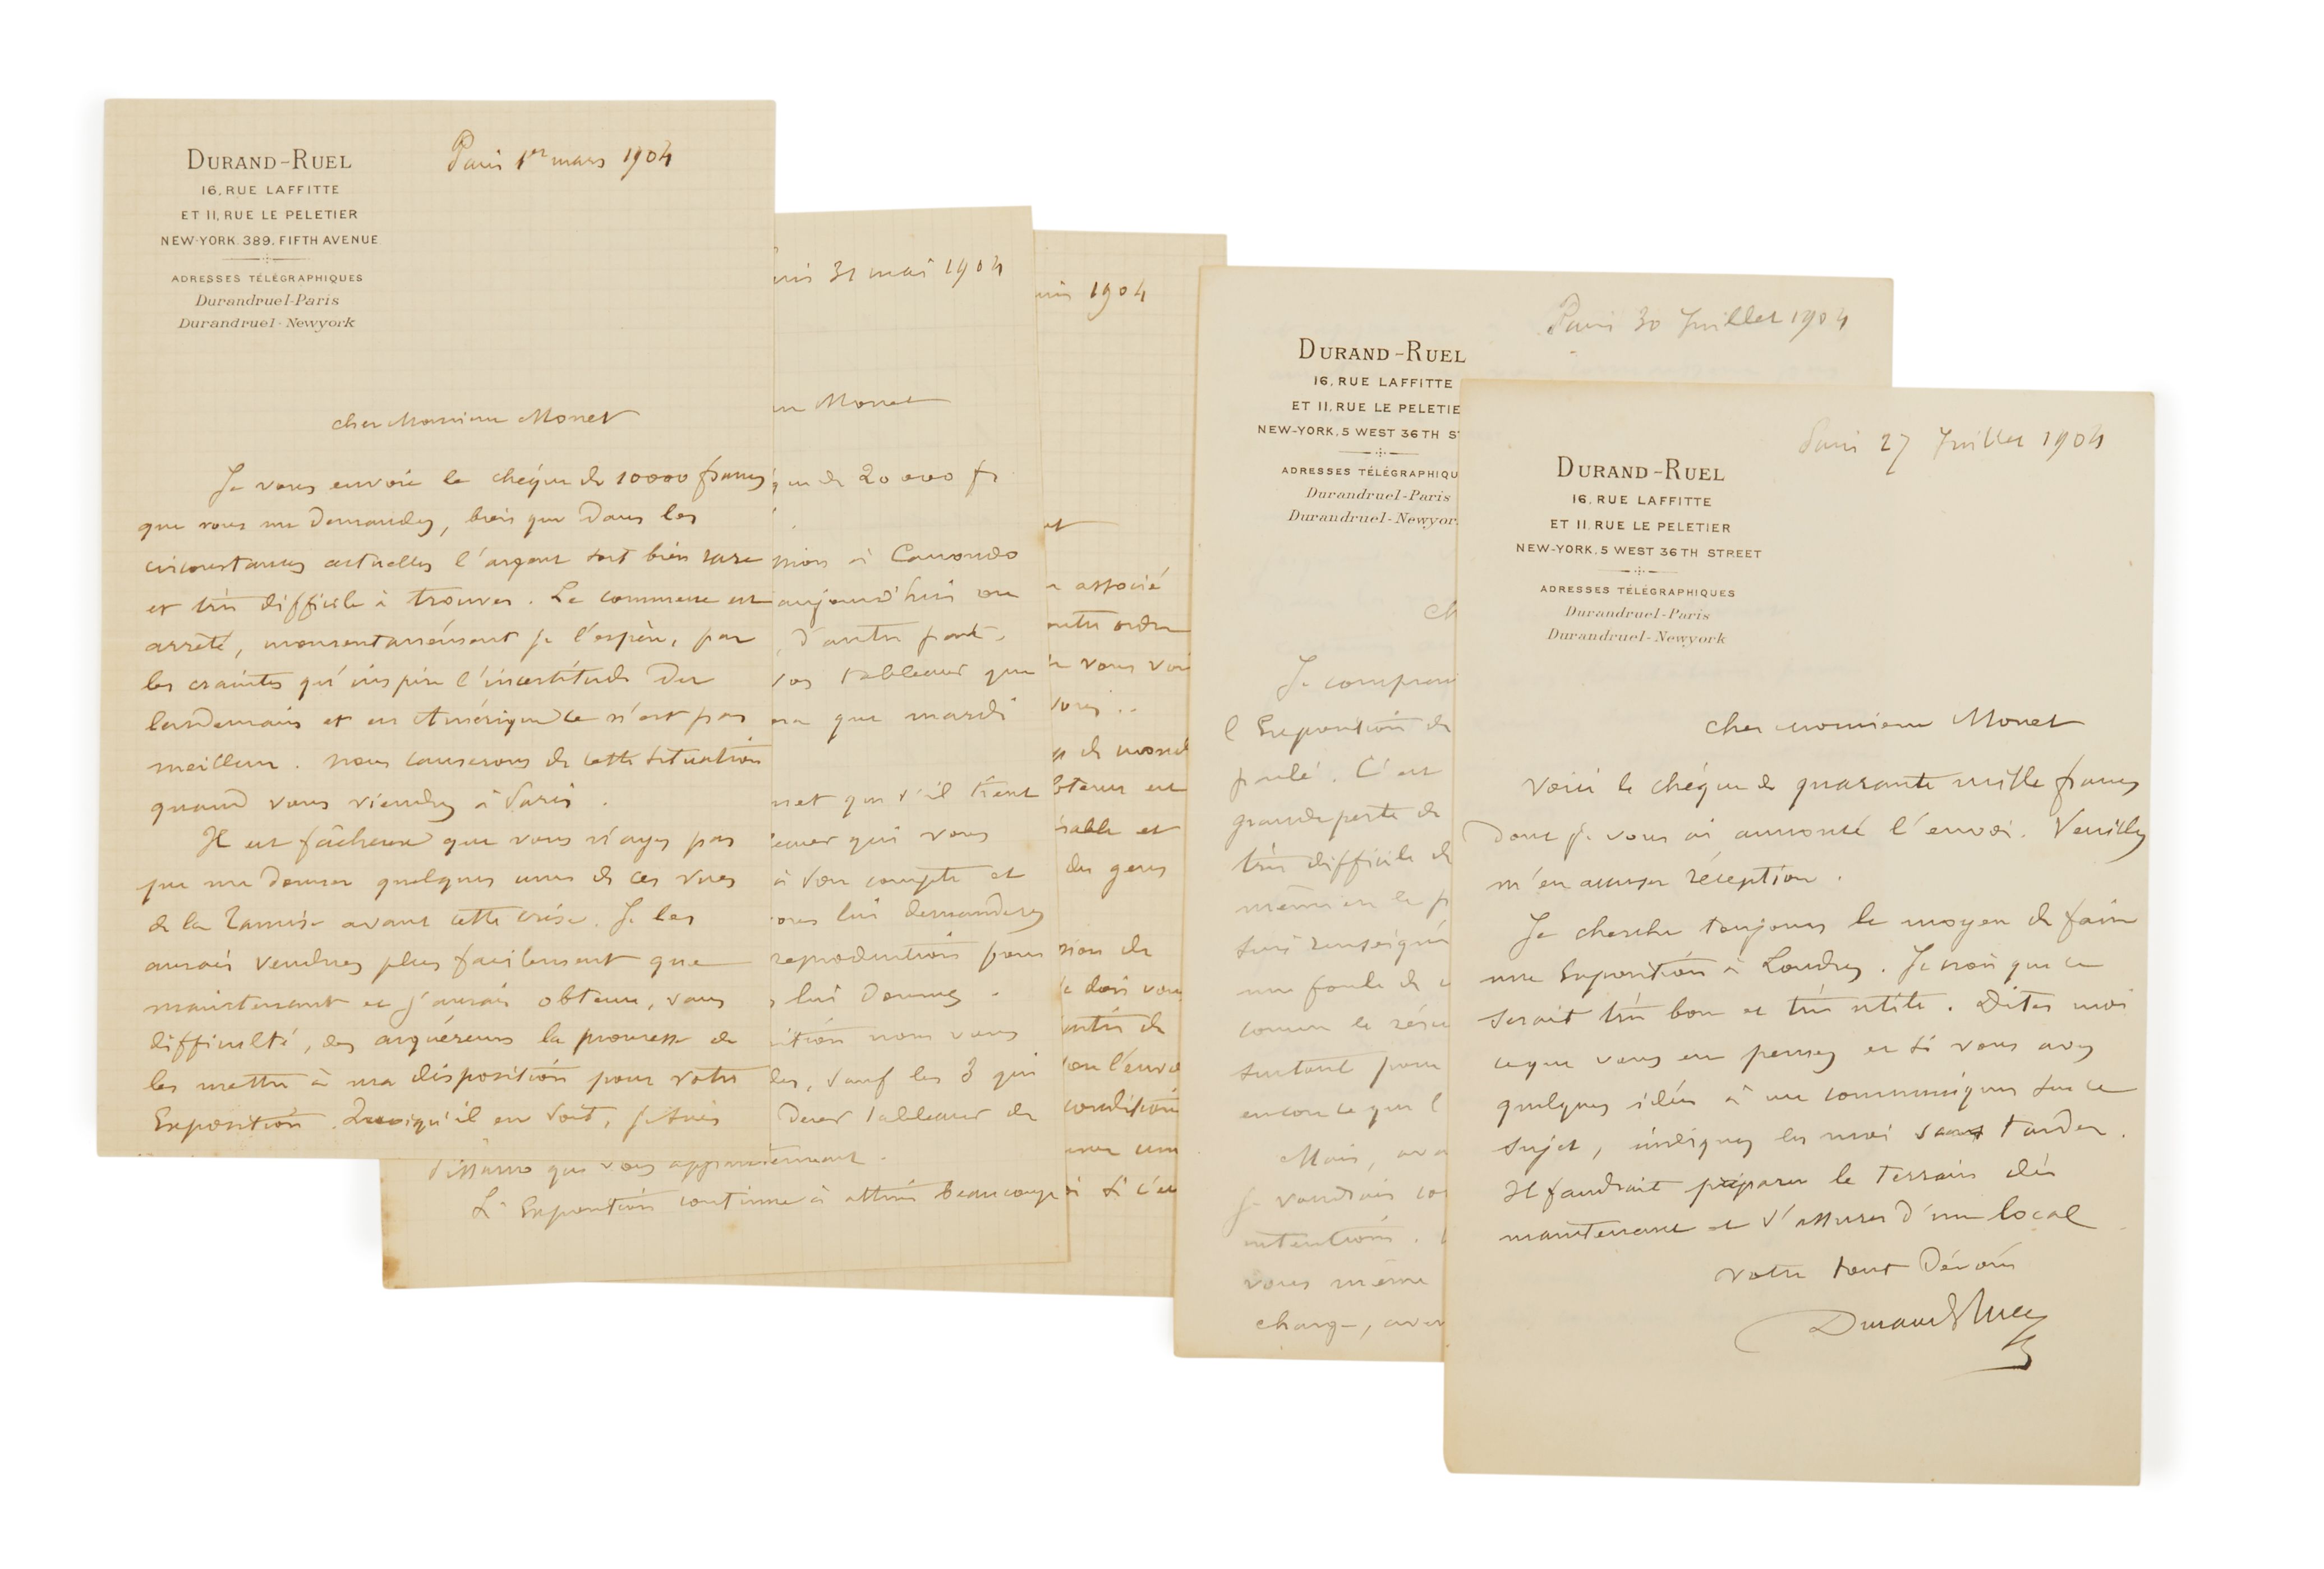 DURAND-RUEL
16, RUE LAFFITTE
ET 11, RUE LE PELETIER
NEW-YORK. 389. FIFTH AVENUE
ADRESSES TÉLÉGRAPHIQUES
Durandruel-Paris
Durandruel-Newyork
Paris 1er mars 1904
cher Monsieur Monet
Je vous envoie le chéque de 10000 francs
que vous me demandez, bien que dans les
circonstances actuelles l'argent soit bien rare
et très difficile à trouver. Le commerce est
arrêté, momentanément je l'espère, par
les craintes qu'inspire l'incertitude du
lendemain et en Amérique ce n'est pas
meilleur. nous causerons de cette situation
quand vous viendrez à Paris.
Il est fâcheux que vous n'ayez pas
pu me donner quelques unes de ces vues
de la Tamise avant cette crise. Je les
aurais vendues plus facilement que
maintenant et j'aurais obtenu, sans
difficulté, des acquéreurs la promesse de
les mettre à ma disposition pour votre
Exposition. Quoiqu'il en soit, je suis
31 mai 1904
Monet
20000 fr
à Camondo
aujourd'hui ou
d'autre part.
vos tableaux que
que mardi
que s'il tient
qui vous
à son compte et
lui demanderez
reproduction pour
lui donnez.
nous vous
sauf les 3 qui
Deux tableaux de
Pissarro que vous appartiennent.
L'Exposition continue à attirer beaucoup
1904
associé
ordre
vous
de monde
et
des gens
de
dois vous
de
l'envoi
condition
si c'est
Paris 30 Juillet 1904
DURAND-RUEL
16, RUE LAFFITTE
ET 11, RUE LE PELETIE
NEW-YORK, 5 WEST 36TH S
ADRESSES TÉLÉGRAPHIQU
Durandruel-Paris
Durandruel-Newyor
Ch
Je compren
l'Exposition de
parlé. C'est
grande perte de
très difficile de
même en le p
suis renseigné
une foule de
comme le résu
surtout pour
encore ce que l
Mais, ava
Je voudrais co
intentions.
vous même
charge, avec
DURAND-RUEL
16, RUE LAFFITTE
ET 11, RUE LE PELETIER
NEW-YORK, 5 WEST 36TH STREET
ADRESSES TÉLÉGRAPHIQUES
Durandruel-Paris
Durandruel-Newyork
Paris 27 Juillet 1904
cher monsieur Monet
Voici le chéque de quarante mille francs
dont je vous ai annoncé l'envoi. Veuillez
m'en accuser réception.
Je cherche toujours le moyen de faire
une Exposition à Londres. Je crois que ce
serait très bon et très utile. Dites moi
ce que vous en pensez et si vous avez
quelques idées à me communiquer sur ce
sujet, indiquez les moi sans tarder.
Il faudrait préparer le terrain dès
maintenant et s'assurer d'un local
votre tout dévoué
Durand-Ruel